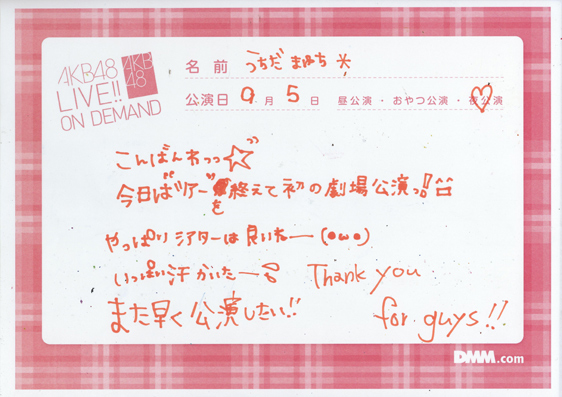 AKB48
LIVE!!
ON DEMAND
AKB
48
名前 うちだ まゆち
公演日 9月 5日 昼公演・おやつ公演・夜公演
こんばんわっっ
今日はツアーを終えて初の劇場公演っ!!
やっぱりシアターは良いねー (●ω●)
いっぱい汗かいたー Thank you
また早く公演したい!! for guys!!
DMM.com